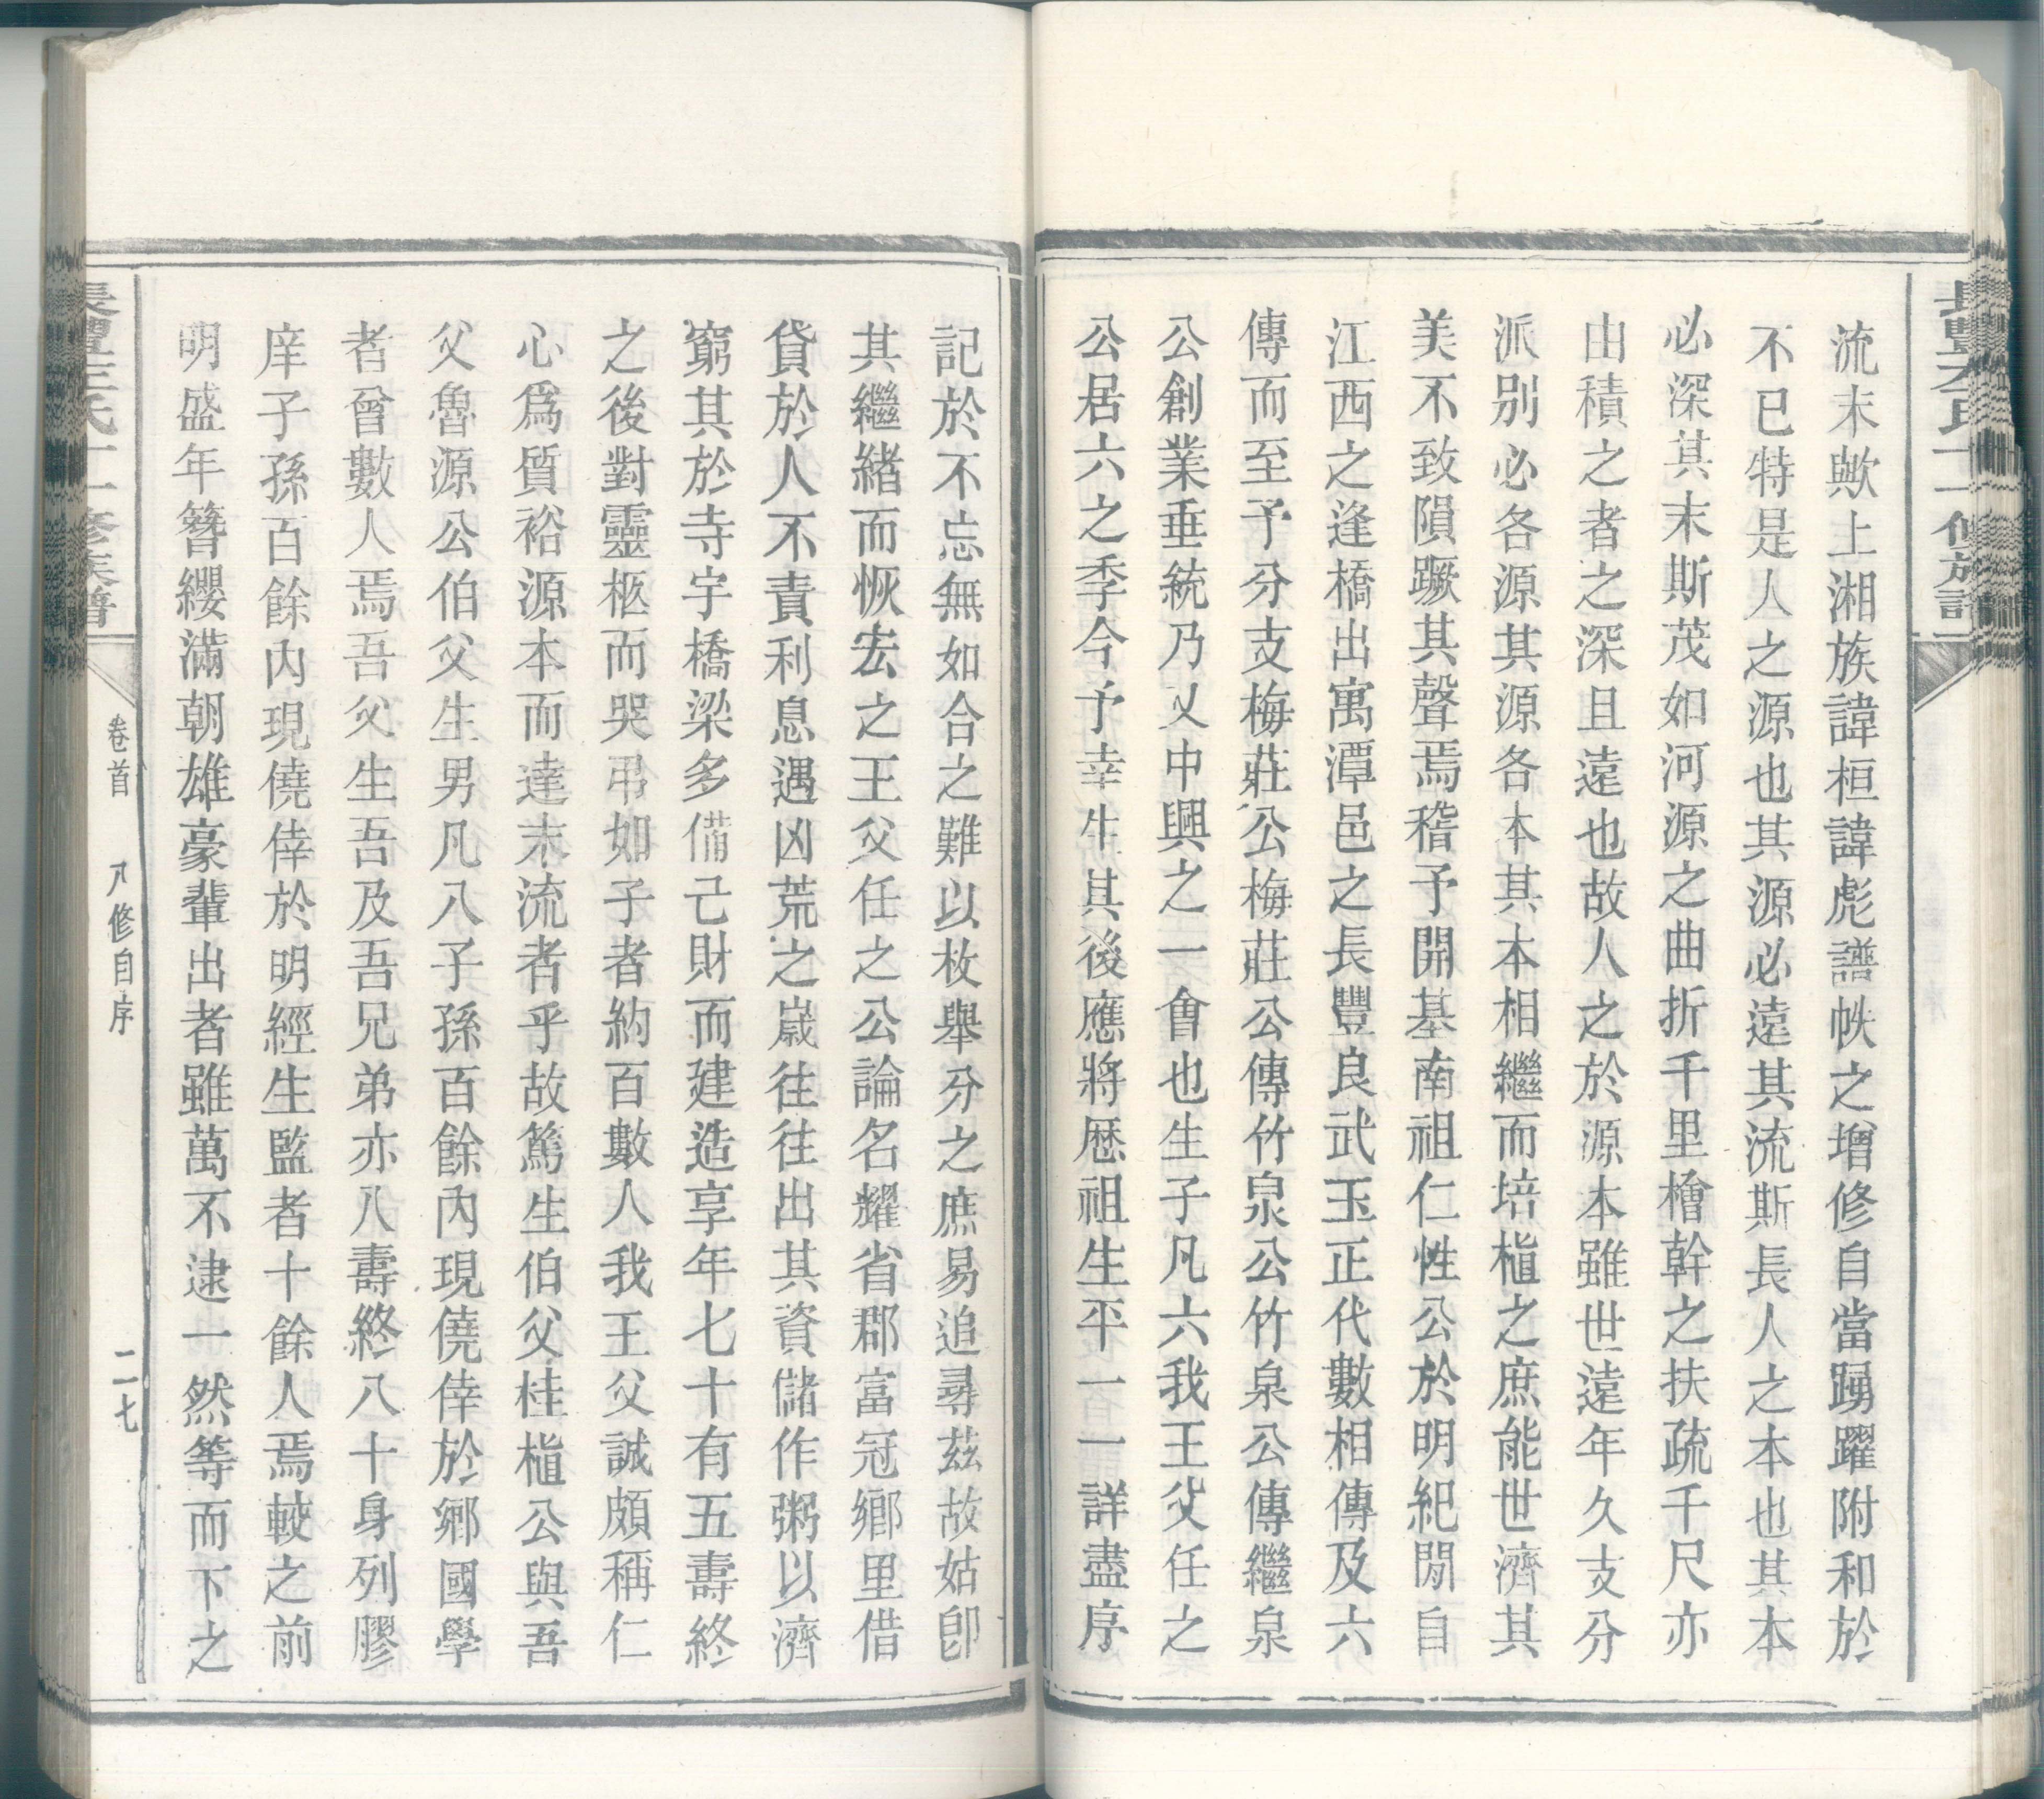 流末歟上湘族諱桓諱彪譜帙之增修自當踴躍附和於
不已特是人之源也其源必遠其流斯長人之本也其本
必深其末斯茂如河源之曲折千里檜幹之扶疏千尺亦
由積之者之深且遠也故人之於源本雖世遠年久支分
派別必各源其源各本其本相繼而培植之庶能世濟其
美不致隕蹶其聲焉稽予開基南祖仁性公於明紀閒自
江西之逢橋出寓潭邑之長豐良武玉正代數相傳及六
傳而至予分支梅莊公梅莊公傳竹泉公竹泉公傳繼泉
公創業垂統乃乂中興之一會也生子凡六我王父任之
公居六之季今予幸生其後應將歷祖生平一一詳盡序
記於不忘無如合之難以枚舉分之庶易追尋茲故姑卽
其繼緒而恢宏之王父任之公論名耀省郡富冠鄉里借
貸於人不責利息遇凶荒之歲往往出其資儲作粥以濟
窮其於寺宇橋梁多備己財而建造享年七十有五壽終
之後對靈柩而哭弔如子者約百數人我王父誠頗稱仁
心爲質裕源本而達末流者乎故篤生伯父桂植公與吾
父魯源公伯父生男凡八子孫百餘內現僥倖於鄉國學
者曾數人焉吾父生吾及吾兄弟亦八壽終八十身列膠
庠子孫百餘內現僥倖於明經生監者十餘人焉較之前
明盛年簪纓滿朝雄豪輩出者雖萬不逮一然等而下之
卷首 八修自序 二七